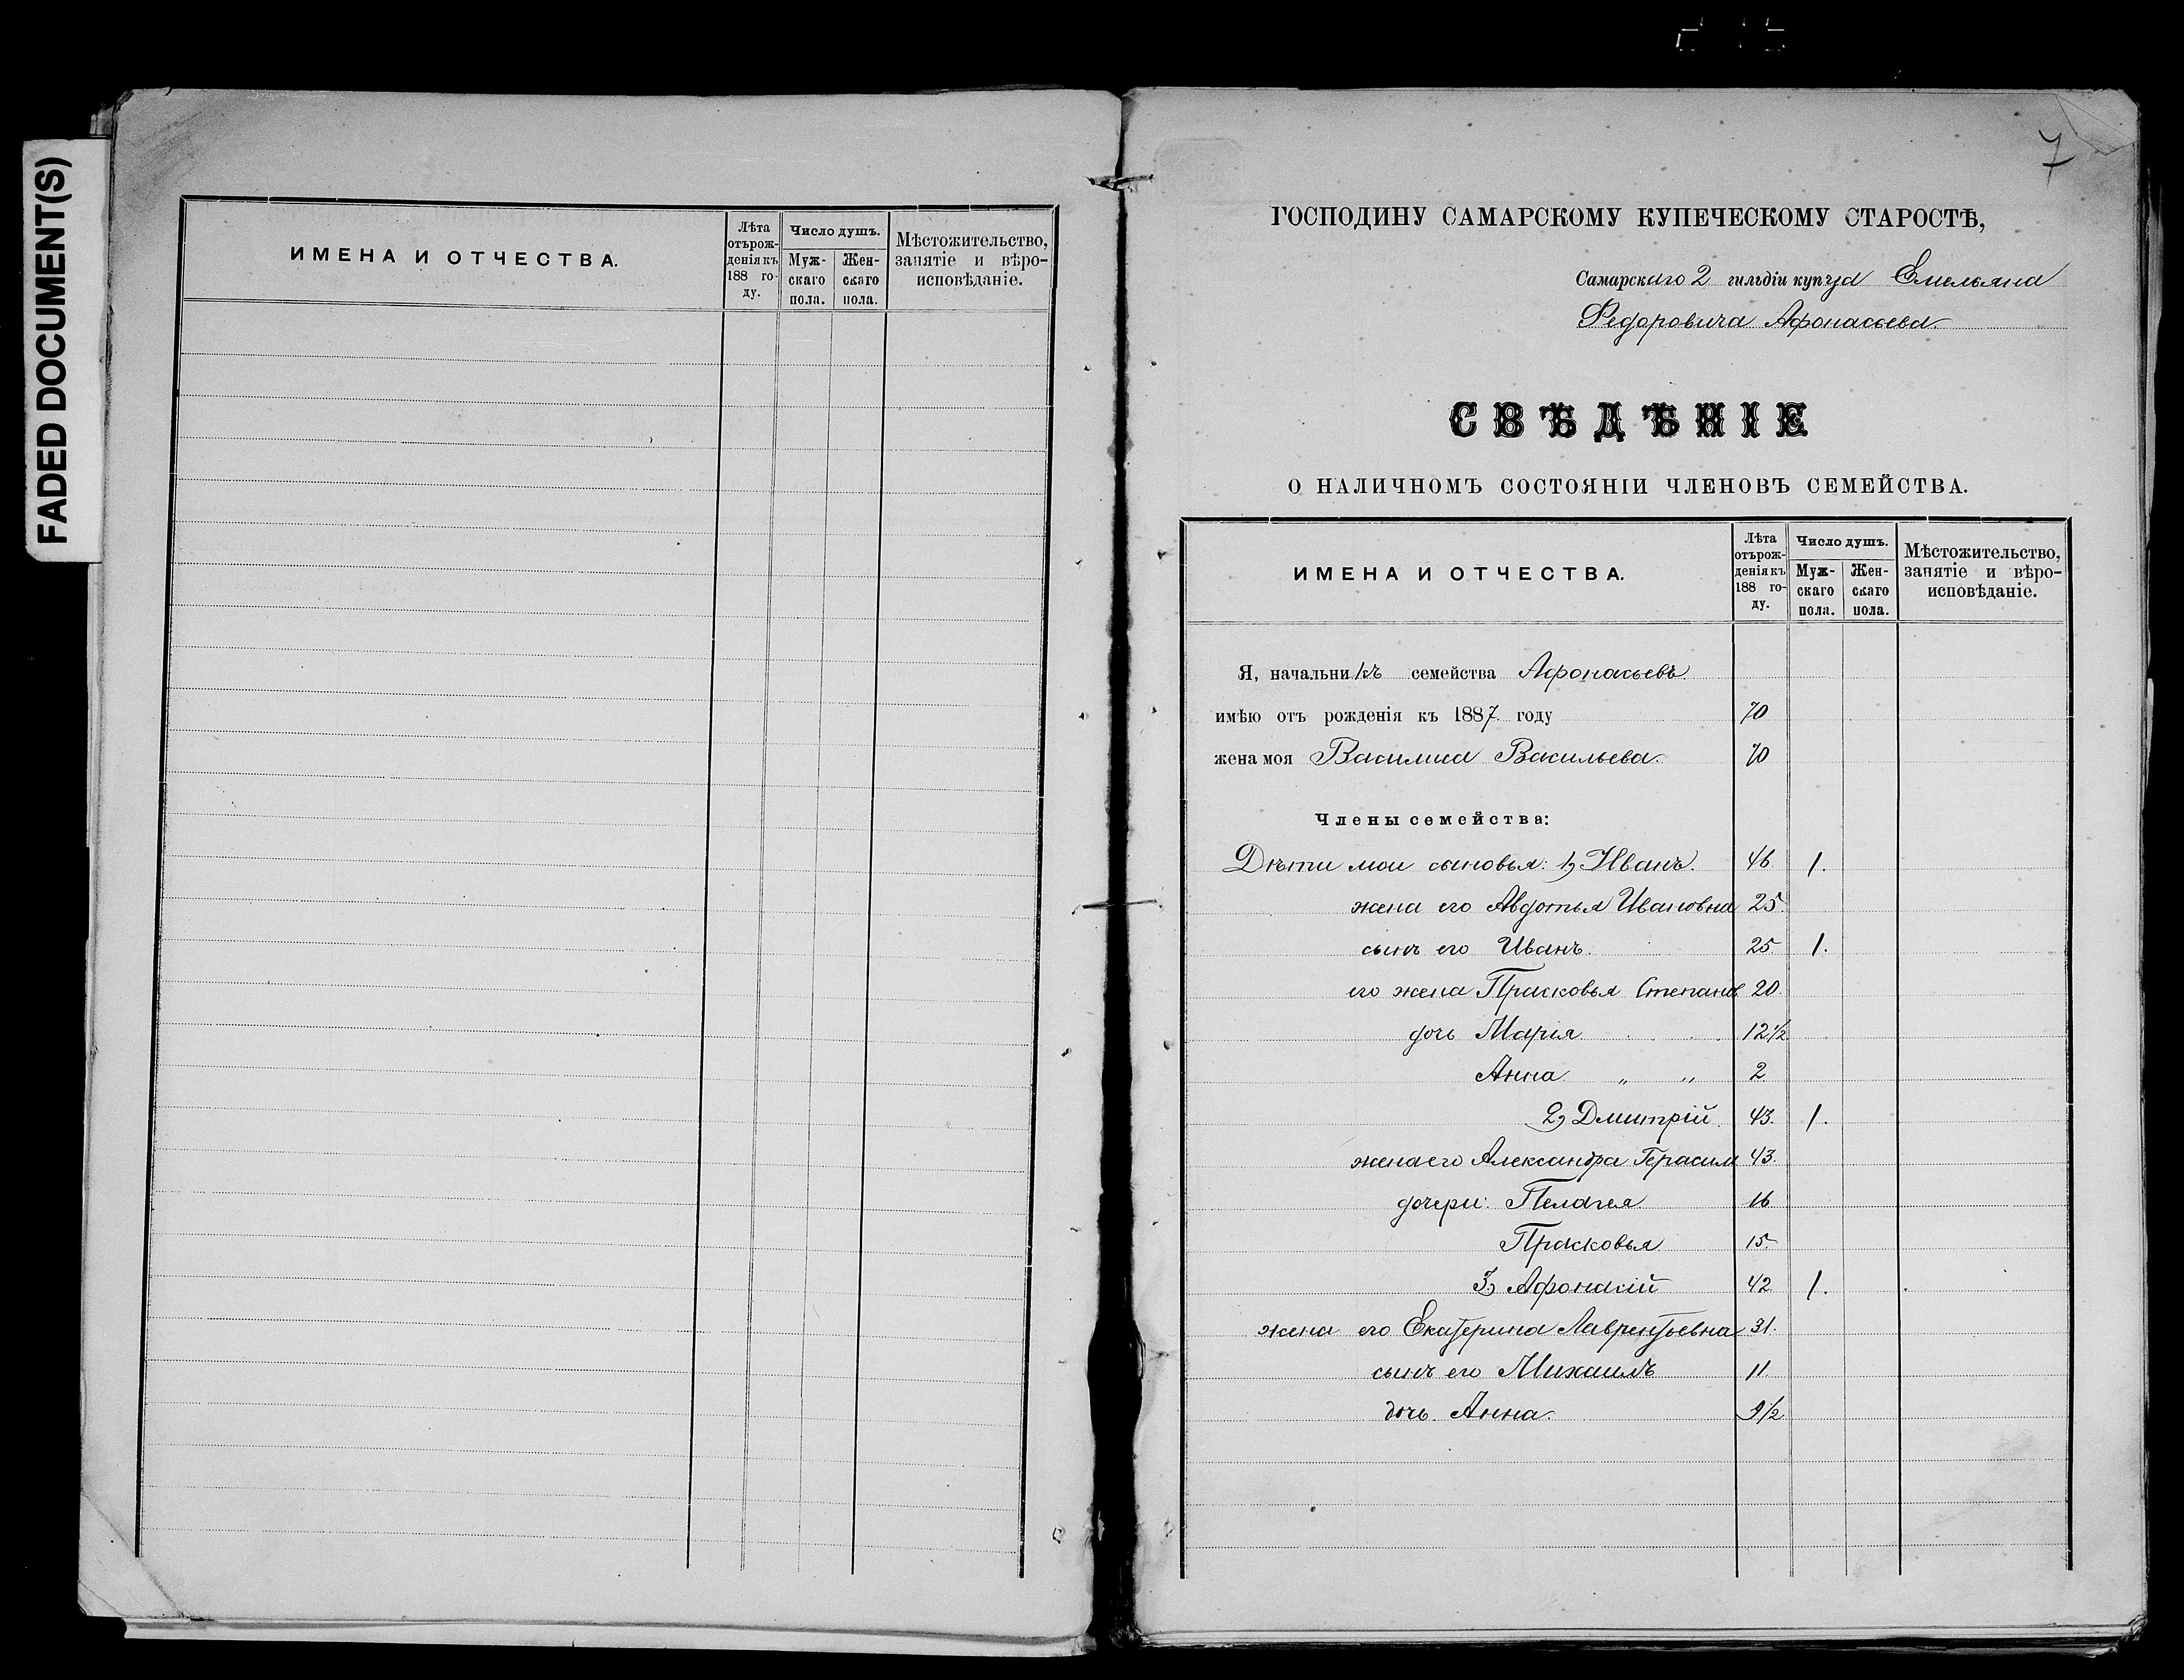 FADED DOCUMENT(S)
ИМЕНА И ОТЧЕСТВА.
Лѣта отърожденія къ 188 году.
Число душъ.
Мужскаго пола.
Женскаго пола.
Мѣстожительство, занятіе и вѣроисповѣданіе.
7
ГОСПОДИНУ САМАРСКОМУ КУПЕЧЕСКОМУ СТАРОСТѢ,
Самарскаго 2 гильдіи купца Емельяна
Федоровича Афонасьева.
СВѢДѢНІЕ
О НАЛИЧНОМЪ СОСТОЯНІИ ЧЛЕНОВЪ СЕМЕЙСТВА.
ИМЕНА И ОТЧЕСТВА.
Лѣта отърожденія къ 188 году.
Число душъ.
Мужскаго пола.
Женскаго пола.
Мѣстожительство, занятіе и вѣроисповѣданіе.
Я, начальникъ семейства Афонасьевъ
имѣю отъ рожденія къ 1887 году 70
жена моя Василиса Васильева. 70
Члены семейства:
Дѣти мои сыновья: 1) Иванъ. 46 1.
жена его Авдотья Ивановна 25.
сынъ его Иванъ. 25 1.
его жена Прасковья Степанов 20.
дочь Марія 12 1/2
Анна " " 2
2) Дмитрій 43. 1.
жена его Александра Герасим 43.
дочери: Пелагея 16
Прасковья 15.
3) Афонасій 42 1.
жена его Екатерина Лаврентьевна 31.
сынъ его Михаилъ 11
дочь Анна. 9 1/2